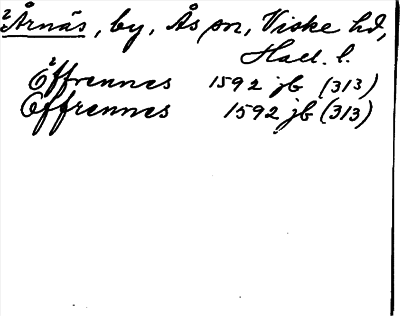 2 Årnäs, by, Ås sn, Viske hd,
Hall. l.
Effrennes 1592 jb (313)
Effrennes 1592 jb (313)